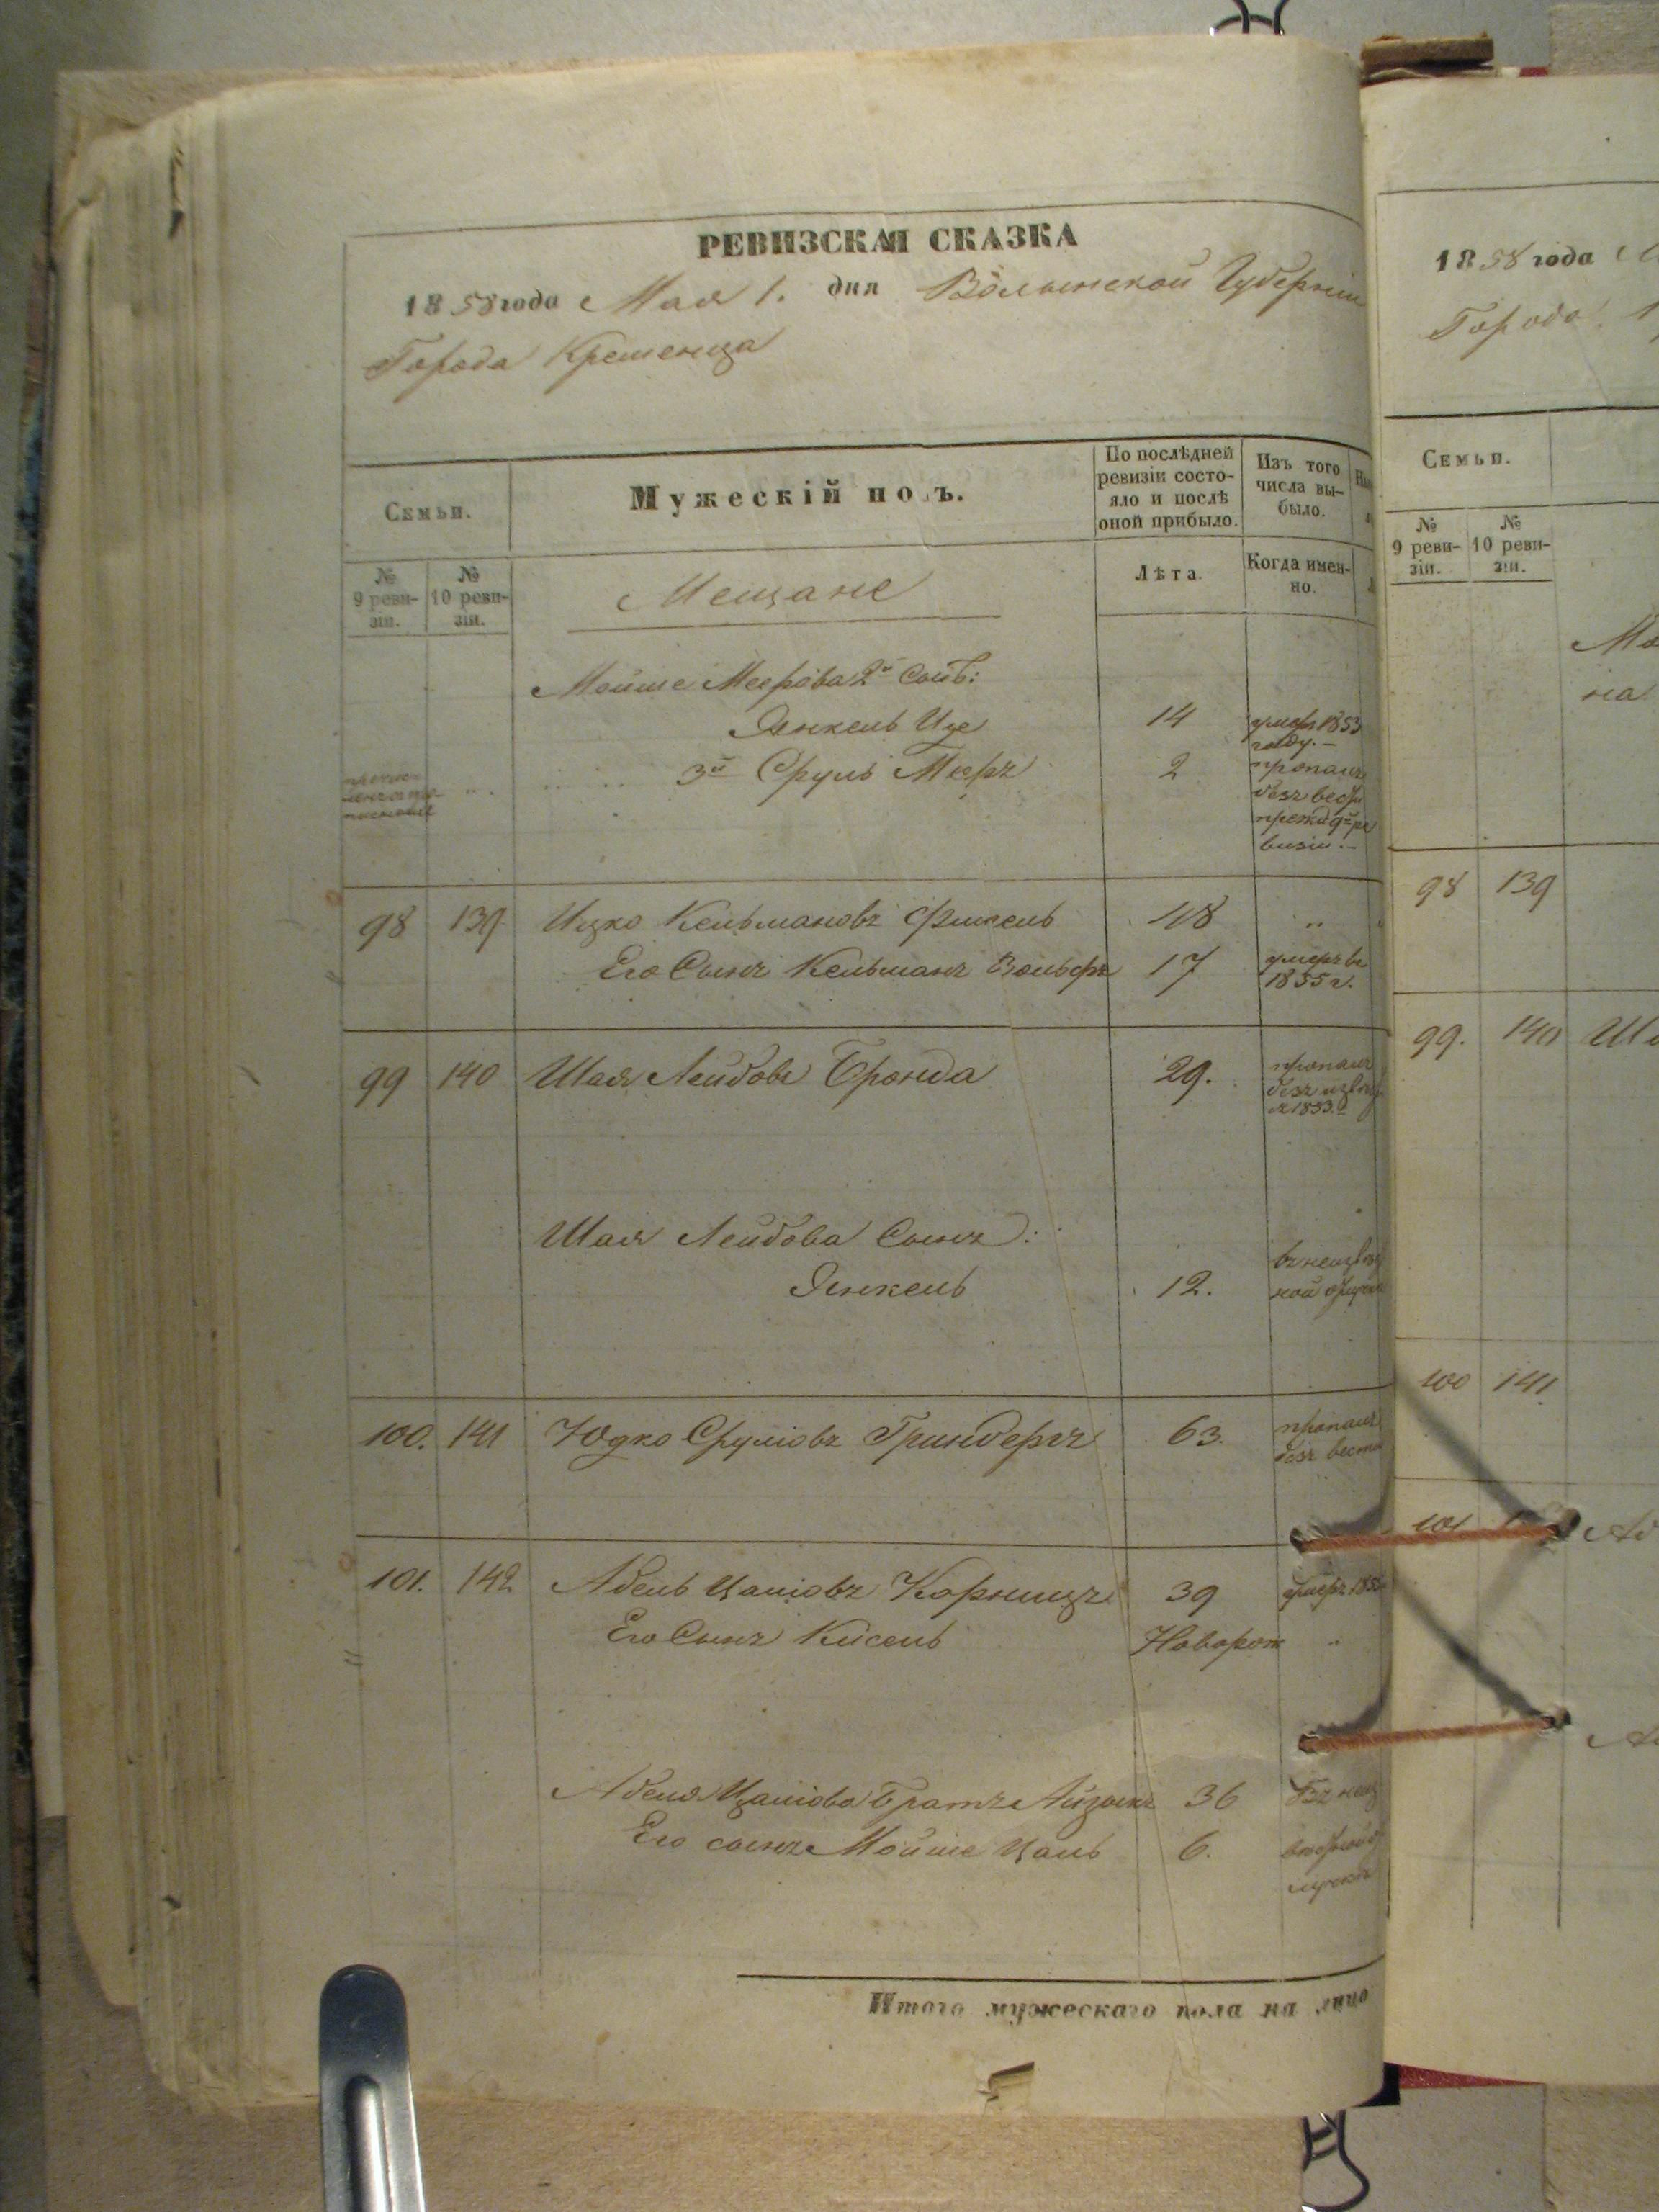 РЕВИЗСКАЯ СКАЗКА
1858 года Мая 1. дня Волынской Губерніи
Города Кременца
Семьи.
Мужескій полъ.
По послѣдней ревизіи состо-
яло и послѣ
оной прибыло.
Изъ того
числа вы-
было.
№
9 реви-
зіи.
№
10 реви-
зіи.
Мещане
Лѣта.
Когда имен-
но.
Мойше Меерова 2й Сынъ:
Янкель Ице 14 умер 1853
году.—
3й Сруль Мееръ 2 пропалъ
безъ вести
прежде 9й ре
визіи.—
98 139 Ицко Кельмановъ Фишель 48 "
Его Сынъ Кельманъ Вольфъ 17 умеръ въ
1855 г.
99 140 Шая Лейбовъ Бронда 29. пропалъ
безъ
1853.
Шая Лейбова Сынъ:
Янкель 12.
100. 141 Юдко Сруліовъ Гринбергъ 63. пропалъ
безъ вести
101. 142 Абель Цаліовъ Корницъ 39 умеръ
Его Сынъ Кисель Новорож "
Абеля Цаліова Братъ Айзикъ 36
Его сынъ Мойше Цаль 6.
Итого мужескаго пола на лицо
1858 года
Города
Семьи.
№
9 реви-
зіи.
№
10 реви-
зіи.
на
98 139
99. 140
100 141
101